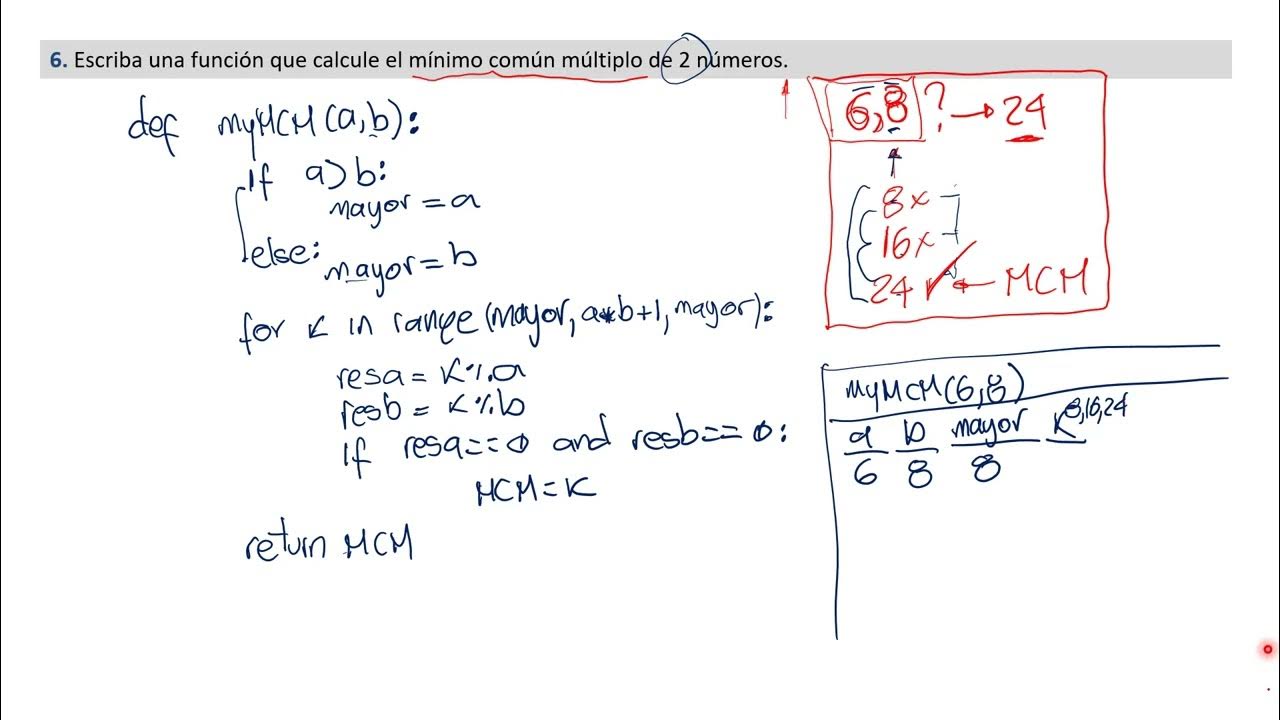 6. Escriba una función que calcule el mínimo común múltiplo de 2 números.
def myMCM(a,b):
if a>b:
mayor=a
else:
mayor=b
for k in range(mayor,a*b+1,mayor):
resa=k%a
resb=k%b
if resa==0 and resb==0:
MCM=k
return MCM
6,8 ? → 24
8x
16x
24 ✓ ← MCM
myMCM(6,8)
a b mayor k 8,16,24
6 8 8